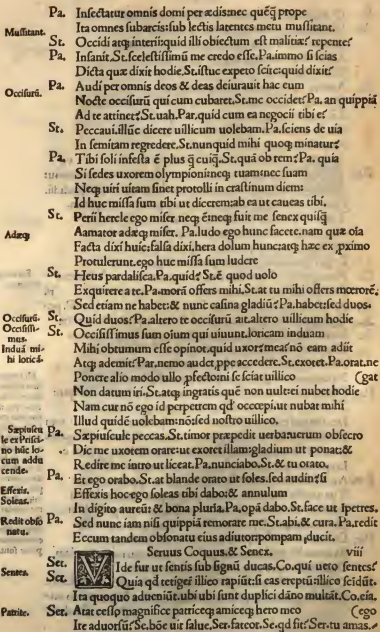 Pa. Insectatur omnis domi per ædis: nec quēq prope
Mussitant. Ita omnes sub arcis: sub lectis latentes metu mussitant.
St. Occidi atq; interii: quid illi obiectum est malitiæ repente?
Pa. Insanit. St. scelestissimū me credo esse. Pa. immo si scias
Dicta quæ dixit hodie. St. istuc expeto scire: quid dixit?
Occisurū. Pa. Audi per omnis deos & deas deiurauit hac eum
Nocte occisurū qui cum cubaret. St. me occidet? Pa. an quippiā
Ad te attinet? St. uah. Par. quid cum ea negocii tibi ē?
St. Peccaui. illūc dicere uillicum uolebam. Pa. sciens de uia
In semitam regredere. St. nunquid mihi quoq; minatur?
Pa. Tibi soli infesta ē plus q̄ cuiq. St. quā ob rem? Pa. quia
Si sedes uxorem olympioni: neq; tuam: nec suam
Neq; uiri uitam sinet protolli in crastinum diem:
Id huc missa sum tibi ut dicerem: ab ea ut caueas tibi.
St. Perii hercle ego miser neq; ē: neq; fuit me senex quisq̄
Adæq; Aamator adæq; miser. Pa. ludo ego hunc facete. nam quæ oīa
Facta dixi huic: falsa dixi. hera dolum hunc: atq; hæc ex pximo
Protulerunt. ego huc missa sum ludere
St. Heus pardalisca. Pa. quid? St. ē quod uolo
Exquirere a te. Pa. morā offers mihi. St. at tu mihi offers mœrorē.
Sed etiam ne habet: & nunc casina gladiū? Pa. habet: sed duos.
Occisurū. St. Quid duos? Pa. altero te occisurā ait. altero uillicum hodie
Occisissimus. St. Occisissimus sum oīum qui uiuunt. loricam induam
Induā mihi loricā. Mihi obtumum esse opinor. quid uxor mea? nō eam adiit
Atq; ademit? Par. nemo audet ppe accedere. St. exoret. Pa. orat. ne (gat
Ponere alio modo ullo pfecto: ni se sciat uillico
Non datum iri. St. atq; ingratis quē non uult: ei nubet hodie
Nam cur nō ego id perpetrem qd' occœpi. ut nubat mihi
Illud quidē uolebam: nō: sed nostro uillico.
Sæpiuscu Pa. Sæpiuscule peccas. St. timor præpedit uerba: uerum obsecro
le ex Prisciano huc locum adducende. Dic me uxorem orare: ut exoret illam: gladium ut ponat: &
Redire me intro ut liceat. Pa. nunciabo. St. & tu orato.
Effexis. Pa. Et ego orabo. St. at blande orato ut soles. sed audin? si
Soleas. Effexis hoc ego soleas tibi dabo: & annulum
In digito aureū: & bona plurīa. Pa. opā dabo. St. face ut īpetres.
Redit obsonatu. Pa. Sed nunc iam nisi quippiā remorare me. St. abi, & cura. Pa. redit
Eccum tandem obsonatu eius adiutor: pompam ducit.
Seruus Coquus. & Senex. viii
Sentes. Ser. VIde fur ut sentis sub signū ducas. Co. qui uero sentes?
Sen. Quia qd' tetigere illico rapiūt: si eas ereptū: illico scīdūt.
Ita quoquo adueniūt. ubi ubi sunt duplici dāno multāt. Co. eia.
Patrice. Ser. Atat cesso magnifice patriceq; amiceq; hero meo (ego
Ire aduorsū? Se. bōe uir salue. Ser. fateor. Se. qd fit? Ser. tu amas.